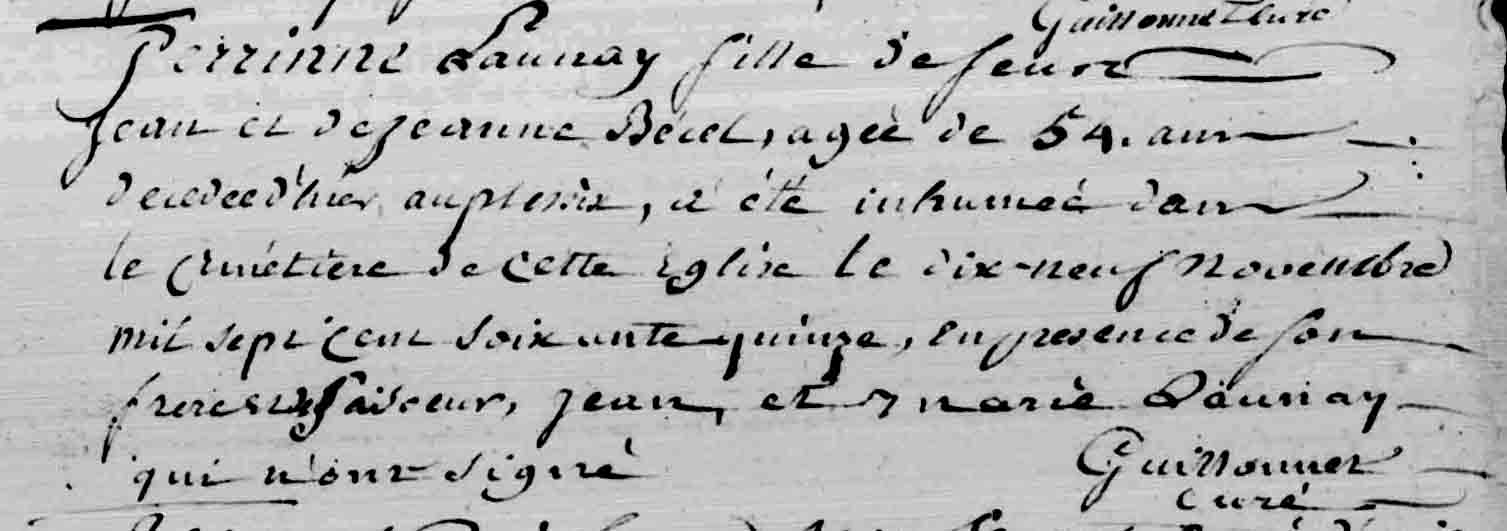 Guissonnet curé
Perrinne Launay fille de feux
Jean et de Jeanne Bécel, agée de 54. ans
decedée d'hier au plessix, a été inhumeé dans
le cimétiere de cette église le dix-neuf Novembre
mil sept cent soixante quinze, en presence de son
frere et sa soeur, Jean, et Marie Launay
qui n'ont signé
Guissonnet
curé